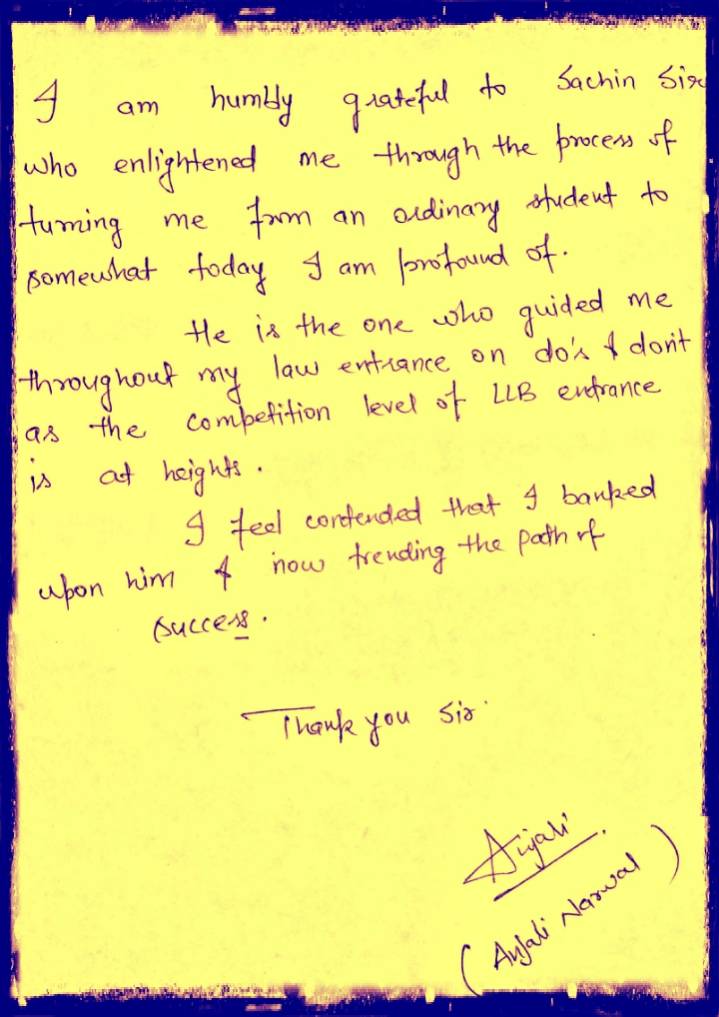 I am humbly grateful to Sachin Sir
who enlightened me through the process of
turning me from an ordinary student to
somewhat today I am profound of.
He is the one who guided me
throughout my law entrance on do's & don't
as the competition level of LLB entrance
is at heights.
I feel contended that I banked
upon him & now trending the path of
success.
Thank you Sir
Anjali
(Anjali Narwal)